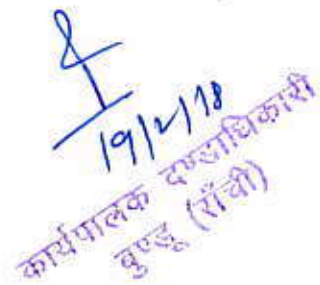 19/2/18
कार्यपालक दण्डाधिकारी
बुण्डू (राँची)